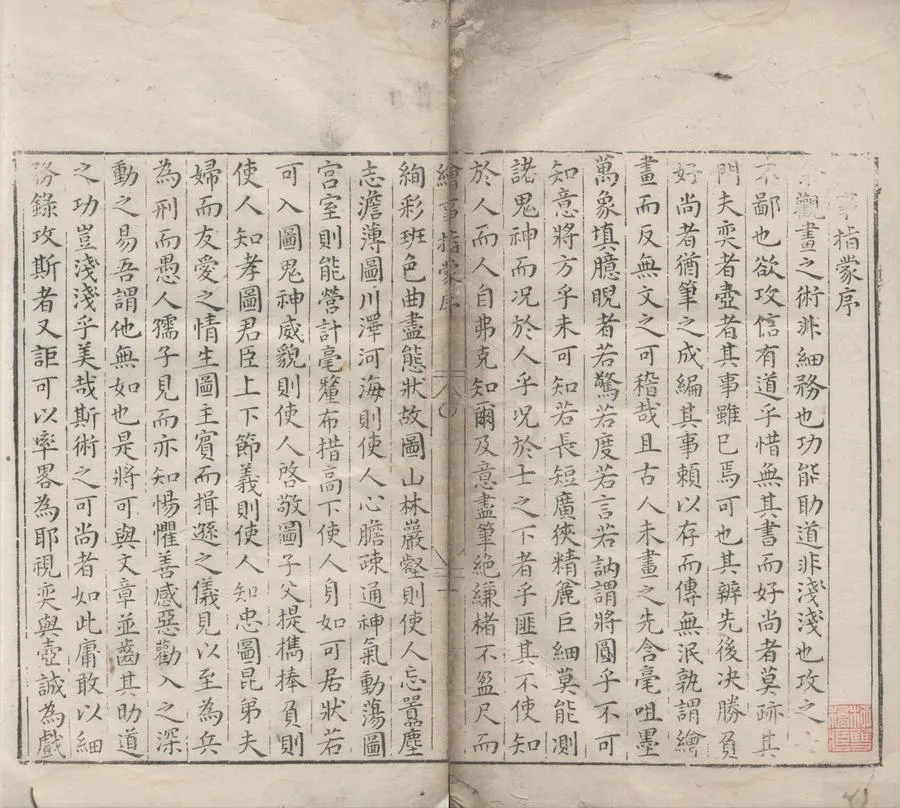 事指蒙序
觀畫之術非細務也功能助道非淺淺也攻之
不鄙也欲攻信有道乎惜無其書而好尚者莫跡其
門夫奕者壺者其事雖已焉可也其辨先後决勝負
好尚者猶筆之成編其事賴以存而傳無泯孰謂繪
畫而反無文之可稽哉且古人未畫之先含毫咀墨
萬象填臆睨者若驚若度若言若訥謂將圓乎不可
知意將方乎未可知若長短廣狹精麄巨細莫能測
諸鬼神而况於人乎况於士之下者乎匪其不使知
於人而人自弗克知爾及意盡筆絶縑楮不盈尺而
繪事指蒙序
絢彩班色曲盡態狀故圖山林巖壑則使人忘囂塵
志澹薄圖川澤河海則使人心膽疎通神氣動蕩圖
宫室則能營計毫釐布措高下使人身如可居狀若
可入圖鬼神威貌則使人啓敬圖子父提擕捧負則
使人知孝圖君臣上下節義則使人知忠圖昆弟夫
婦而友愛之情生圖主賓而揖遜之儀見以至為兵
為刑而愚人孺子見而亦知惕懼善感惡勸入之深
動之易吾謂他無如也是將可與文章並齒其助道
之功豈淺淺乎美哉斯術之可尚者如此庸敢以細
務錄攻斯者又詎可以率畧為耶視奕與壺誠為戲